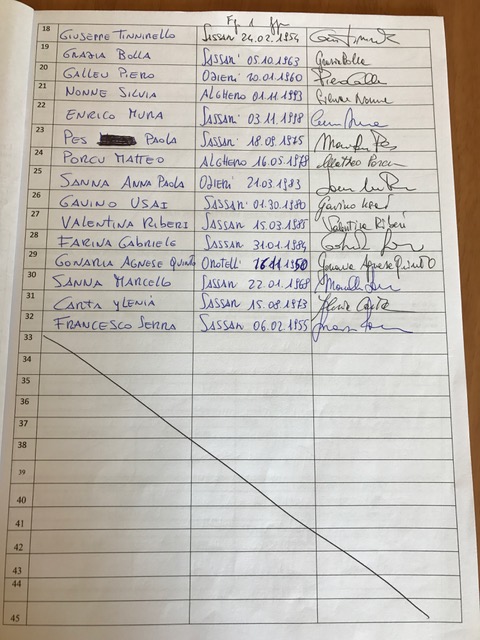 18 GIUSEPPE TINNIRELLO SASSARI 24.02.1954
19 GRAZIA BOLLA SASSARI 05.10.1963 Grazia Bolla
20 GALLEU PIERO OZIERI 20.01.1960 Piero Galleu
21 NONNE SILVIA ALGHERO 01.11.1993 Silvia Nonne
22 ENRICO MURA SASSARI 03.11.1978
23 PES PAOLA SASSARI 18.09.1975
24 PORCU MATTEO ALGHERO 16.05.1978 Matteo Porcu
25 SANNA ANNA PAOLA OZIERI 21.03.1983
26 GAVINO USAI SASSARI 01.30.1980 Gavino Usai
27 VALENTINA RIBERI SASSARI 15.03.1985 Valentina Riberi
28 FARINA GABRIELE SASSARI 31.01.1984
29 GONARIA AGNESE QUINTO OROTELLI 16.11.1950 Gonaria Agnese Quinto
30 SANNA MARCELLO SASSARI 22.01.1968
31 CARTA YLENIA SASSARI 15.08.1973 Ylenia Carta
32 FRANCESCO SERRA SASSARI 06.02.1955
33
34
35
36
37
38
39
40
41
42
43
44
45